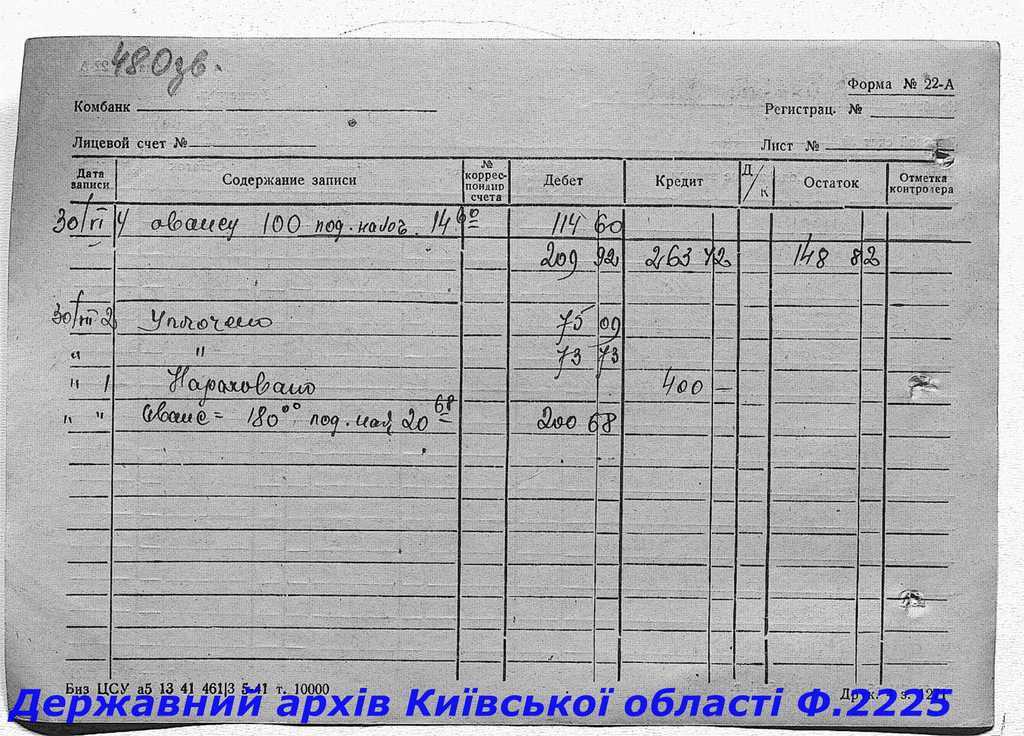 480зв.
Форма № 22-А
Комбанк
Регистрац. №
Лицевой счет №
Лист №
Дата записи
Содержание записи
№ коррес-пондир счета
Дебет
Кредит
Д/К
Остаток
Отметка контролера
30/VI У авансу 100 под. налог. 14 60 114 60
209 92 263 72 148 82
30/VII 2 Уплочено 75 09
" " 73 73
" 1 Нараховано 400 —
" " Аванс = 180 00 под. нал. 20 68 200 68
Биз ЦСУ а5 13 41 461|3 5-41 т. 10000
Державний архів Київської області Ф.2225